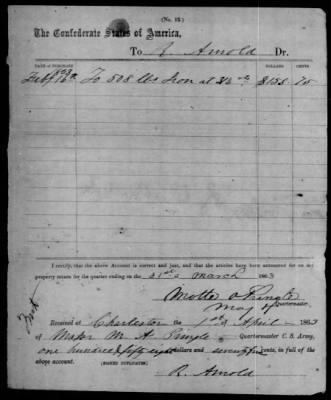 (No. 12.)
The Confederate States of America,
To R. Arnold Dr.
DATE OF PURCHASE DOLLARS CENTS
1863
Feby To 508 lbs Iron at $158. 75
I certify, that the above Account is correct and just, and that the articles have been accounted for on my
property return for the quarter ending on the 31st March 1863
Motte A Pringle
Maj & Quartermaster.
Received at Charleston the 1st April 1863
of Major M. A. Pringle Quartermaster C. S. Army,
one hundred & fifty eight dollars and cents, in full of the
above account.
(SIGNED DUPLICATES.)
R. Arnold